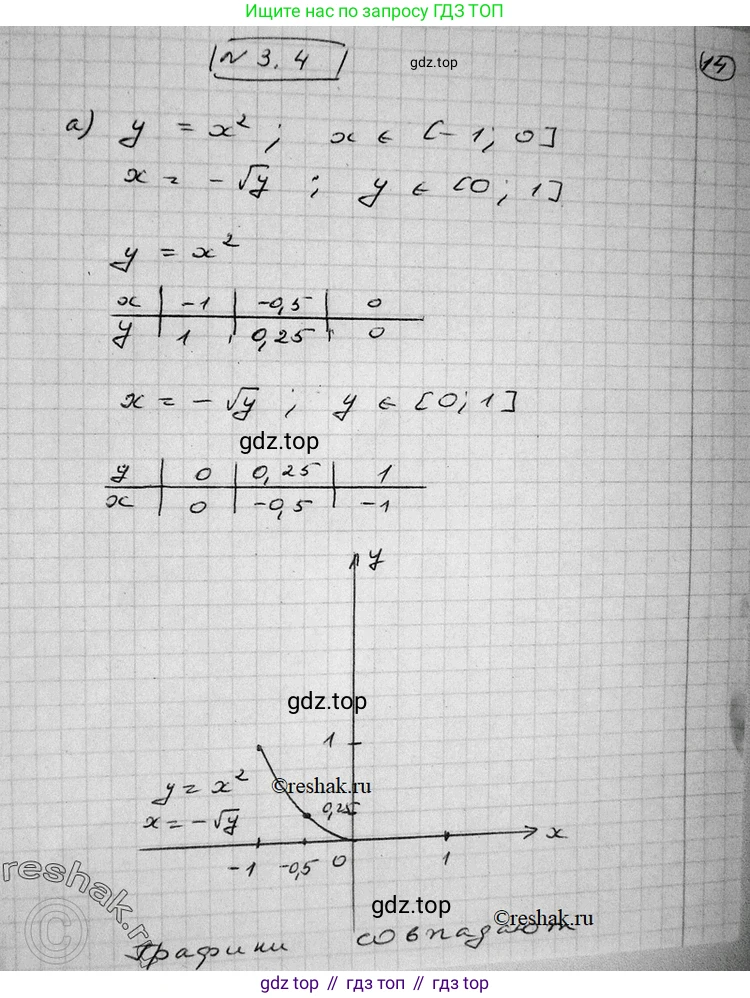 Ищите нас по запросу ГДЗ ТОП
N 3.4
gdz.top
14
а) y = x²; x ∈ [-1; 0]
x = -√y ; y ∈ [0; 1]
y = x²
x | -1 | -0,5 | 0
y | 1 | 0,25 | 0
x = -√y ; y ∈ [0; 1]
gdz.top
y | 0 | 0,25 | 1
x | 0 | -0,5 | -1
y
gdz.top
1
y = x²
©reshak.ru
x = -√y
0,25
x
-1 -0,5 0 1
reshak.ru
©
gdz.top
©reshak.ru
Графики совпадают
gdz top // гдз топ // gdz.top